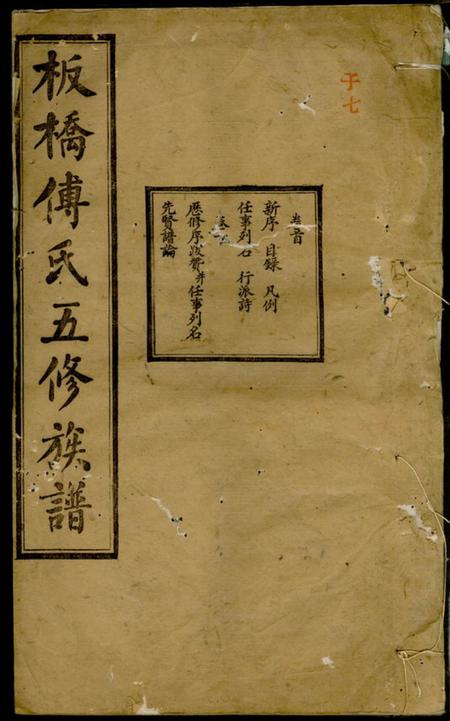 于七
卷首
新序 目錄 凡例
任事列名 行派詩
卷一
歷修序跋贊并任事列名
先賢譜論
板橋傅氏五修族譜